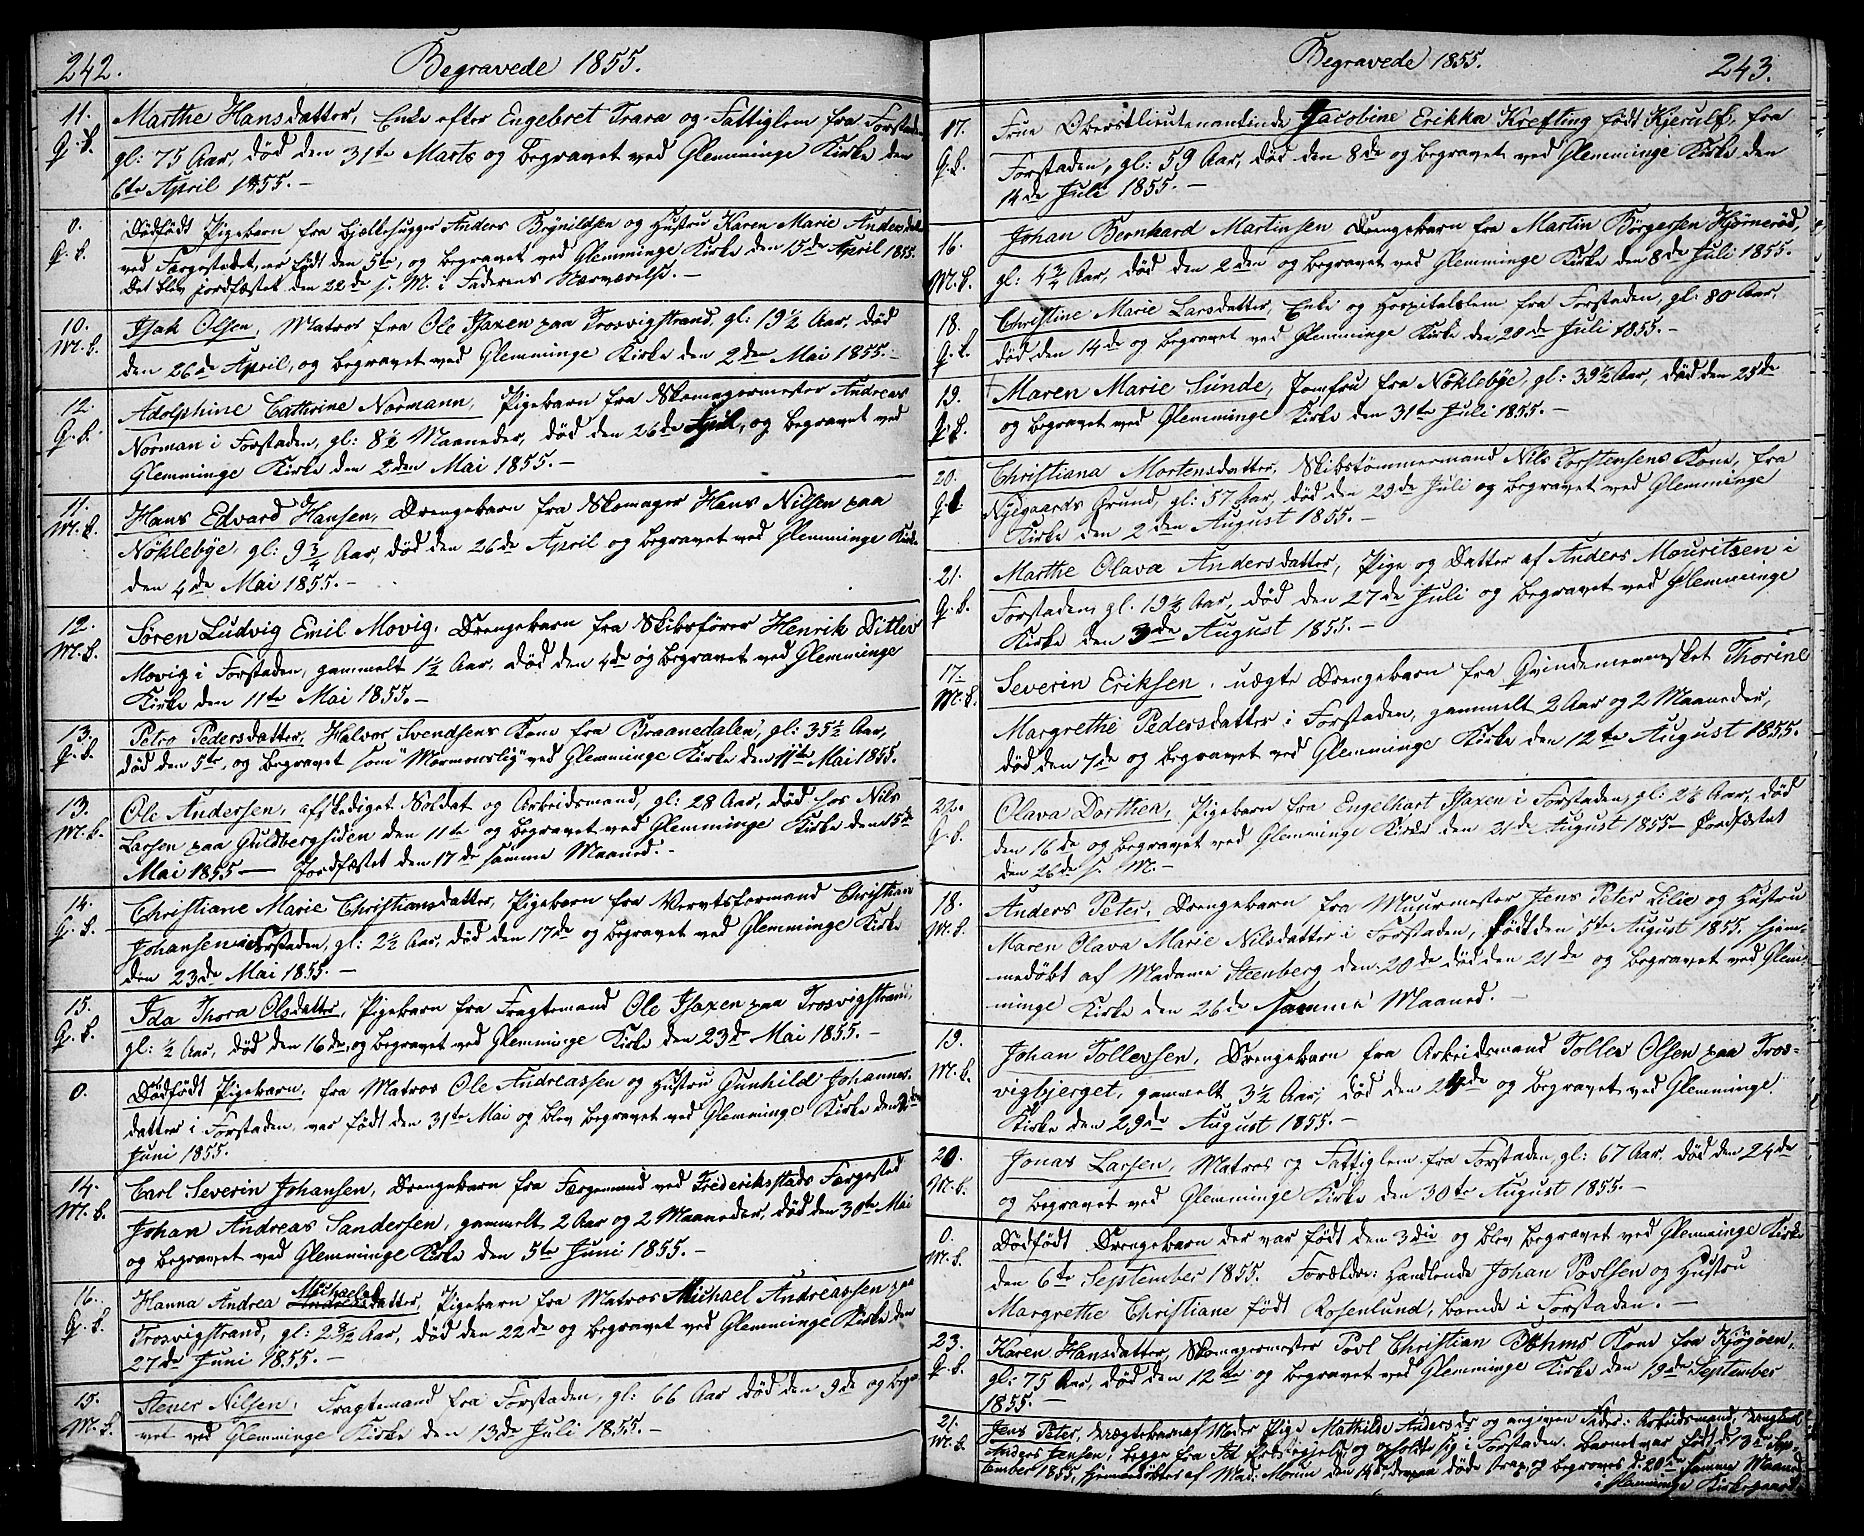 242.
Begravede 1855.
11.
Q. K.
Marthe Hansdatter, Enke efter Engebret Trara og Fattiglem fra Forstaden
gl: 75 Aar, død den 31te Marts og begravet ved Glemminge Kirke den
6te April 1855.—
0.
Q. K.
Dødfødt Pigebarn fra Bjelkehugger Anders Brynildsen og Hustru Karen Marie Andersdatter
ved Færgestedet, er født den 5te, og begravet ved Glemminge Kirke den 15de April 1855.
Det blev jordfæstet den 22de s. M. i Faderens Nærværelse.—
10.
M. K.
Isak Olsen, Matros fra Ole Isaxen paa Trosvigstrand, gl: 19½ Aar, død
den 26de April, og begravet ved Glemminge Kirke den 2den Mai 1855.—
12.
Q. K.
Adolphine Cathrine Normann, Pigebarn fra Skomagermester Andreas
Norman i Forstaden, gl: 8½ Maaneder, død den 26de April, og begravet ved
Glemminge Kirke den 2den Mai 1855.—
11.
M. K.
Hans Edvard Hansen, Drengebarn fra Skomager Hans Nilsen paa
Nöklebye, gl: 9¾ Aar, død den 26de April og begravet ved Glemminge Kirke
den 4de Mai 1855.—
12.
M. K.
Sören Ludvig Emil Movig, Drengebarn fra Skibsfører Henrik Ditlev
Movig i Forstaden, gammelt 1½ Aar, død den 4de og begravet ved Glemminge
Kirke den 11te Mai 1855.—
13.
Q. K.
Petro Pedersdatter, Halvor Svendsens Kone fra Braanedalen, gl: 35½ Aar,
død den 5te, og begravet som "Mormonslig" ved Glemminge Kirke den 11te Mai 1855.
13.
M. K.
Ole Andersen, afskediget Soldat og Arbeidsmand, gl: 28 Aar, død hos Nils
Larsen paa Guldbergsiden den 11te og begravet ved Glemminge Kirke den 15de
Mai 1855— Jordfæstet den 17de samme Maaned.—
14.
Q. K.
Christiane Marie Christiansdatter, Pigebarn fra Verftsformand Christian
Johansen i Forstaden, gl: 2½ Aar, død den 17de og begravet ved Glemminge Kirke
den 23de Mai 1855.—
15.
Q. K.
Ida Thora Olsdatter, Pigebarn fra Fragtemand Ole Isaxen paa Trosvigstrand,
gl: ½ Aar, død den 16de, og begravet ved Glemminge Kirke den 23de Mai 1855.—
0.
Dødfødt Pigebarn, fra Matros Ole Andreassen og Hustru Gunhild Johannes-
datter i Forstaden, var født den 31te Mai og blev begravet ved Glemminge Kirke den 2den
Juni 1855.
14.
M. K.
Carl Severin Johansen, Drengebarn fra Færgemand ved Frederiksstads Færgested
Johan Andreas Sandersen, gammelt 2 Aar og 2 Maaneder, død den 30te Mai
og begravet ved Glemminge Kirke den 5te Juni 1855.—
16.
Q. K.
Michaels
Hanna Andrea Andreasdatter, Pigebarn fra Matros Michael Andreassen paa
Trosvigstrand, gl: 2½ Aar, død den 22de og begravet ved Glemminge Kirke den
27de Juni 1855.—
15.
M. K.
Stener Nilsen, Fragtemand fra Forstaden, gl: 66 Aar død den 9de og begra-
vet ved Glemminge Kirke den 13de Juli 1855.—
Begravede 1855.
243.
17.
Q. K.
Frue Oberstlieutenantinde Jacobine Erikka Krefting født Kjerulf, fra
Forstaden, gl: 59 Aar, død den 8de og begravet ved Glemminge Kirke den
14de Juli 1855.—
16.
M. K.
Johan Bernhard Martinsen Drengebarn fra Martin Börgersen Hjörneröd,
gl: 4½ Aar, død den 2den og begravet ved Glemminge Kirke den 8de Juli 1855.
18.
Q. K.
Christine Marie Larsdatter, Enke og Hospitalslem fra Forstaden, gl: 80 Aar,
død den 14de og begravet ved Glemminge Kirke den 20de Juli 1855.—
19.
Q. K.
Maren Marie Sunde, Jomfru fra Nöklebye, gl: 39½ Aar, død den 25de
og begravet ved Glemminge Kirke den 31te Juli 1855.—
20.
Q. K.
Christiana Mortensdatter, Skibstømmermand Nils Torstensens Kone, fra
Nygaards Grund, gl: 57 Aar, død den 29de Juli og begravet ved Glemminge
Kirke den 2den August 1855.—
21.
Q. K.
Marthe Olava Andersdatter, Pige og Datter af Anders Mouritsen i
Forstaden gl. 19½ Aar, død den 27de Juli og begravet ved Glemminge
Kirke den 3de August 1855.—
17.
M. K.
Severin Eriksen, uægte Drengebarn fra Qvindemennesket Thorine
Margrethe Pedersdatter i Forstaden, gammelt 2 Aar og 2 Maaneder,
død den 7de og begravet ved Glemminge Kirke den 12te August 1855.
22.
Q. K.
Olava Dorthea, Pigebarn fra Engelhart Isaxen i Forstaden, gl: Aar, død
den 16de og begravet ved Glemminge Kirke den 21de August 1855— Jordfæstet
den 26de s. M.—
18.
M. K.
Anders Peter, Drengebarn fra Muurmester Jens Peter Lilie og Hustru
Maren Olava Marie Nilsdatter i Forstaden, født den 5te August 1855. hjem-
medøbt af Madame Steenberg den 20de død den 21de og begravet ved Glem-
minge Kirke den 26de samme Maaned.—
19.
M. K.
Johan Tollersen, Drengebarn fra Arbeidsmand Toller Olsen paa Tros-
vigbjerget, gammelt 3½ Aar, død den 24de og begravet ved Glemminge
Kirke den 29de August 1855.—
20.
M. K.
Jonas Larsen, Matros og Fattiglem fra Forstaden, gl: 67 Aar, død den 24de
og begravet ved Glemminge Kirke den 30te August 1855.—
0.
M. K.
Dødfødt Drengebarn der var født den 3die og blev begravet ved Glemminge Kirke
den 6te September 1855. Forældre: Handlende Johan Povlsen og Hustru
Margrethe Christiane født Rosenlund, boende i Forstaden.—
23.
Q. K.
Karen Hansdatter, Skomagermester Povl Christian Böhms Kone fra Kjögöen,
gl: 75 Aar, død den 12te og begravet ved Glemminge Kirke den 19de September
1855.—
21.
M. K.
Jens Peter, Uægtebarn af Moder Pige Mathilde Andersdr og angiven Fader: Arbeidsmand, Ungkarl
Anders Jensen, begge fra og opholde sig i Forstaden. Barnet var født d. 13de Sep-
tember 1855, hjemmedøbtes af Mad: Morum den 14de, døde strax, og begroves d. 20de samme Maaned
i Glemminge Kirkegaard.